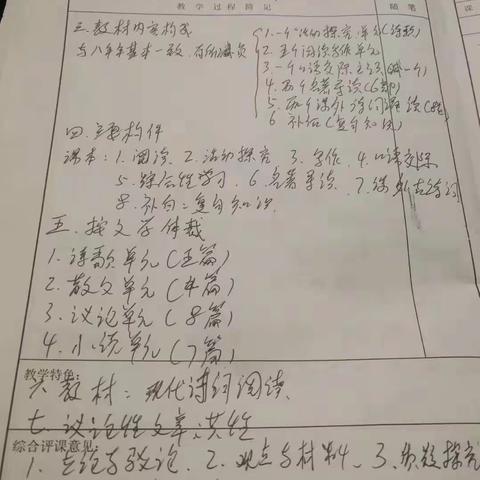 教学过程简记
随笔
三.教材内容构成
与八年级基本一致,有所减负
1.一个活动探究单元(诗歌)
2.五个阅读写作单元
3.一个口语交际
4.两个名著导读(6部)
5.两个课外诗词诵读
6.补白(复句知识)
四.主要构件
课本:1.阅读、2.活动探究 3.写作、4.口语交际
5.综合性学习、6.名著导读、7.课外古诗词
8.补白:复句知识
五.按文学体裁
1.诗歌单元(五篇)
2.散文单元(4篇)
3.议论单元(8篇)
4.小说单元(7篇)
教学特色:
六 教材:现代诗词阅读
七 议论性文章:共性
综合评课意见:
1.立论与驳论、2.观点与材料、3.质疑探究